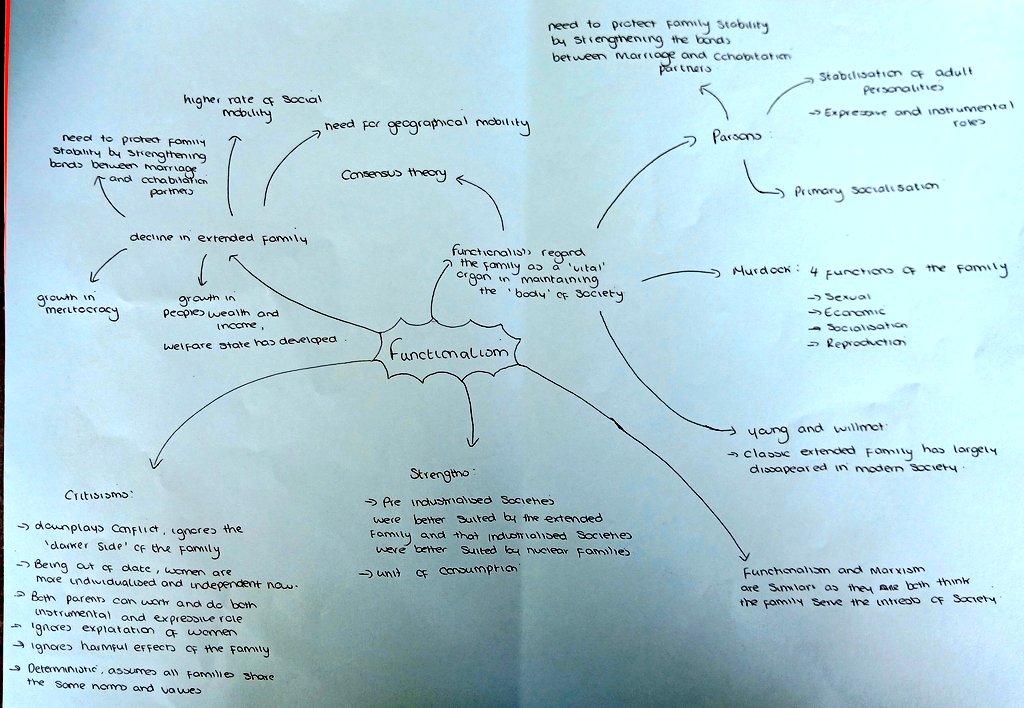 need to protect family stability
by strengthening the bonds
between marriage and cohabitation
partners
Stabilisation of adult
personalities
→ Expressive and instrumental
roles
Parsons:
Primary socialisation
higher rate of social
mobility
need for geographical mobility
need to protect family
stability by strengthening
bonds between marriage
and cohabitation
partners
Consensus theory
decline in extended family
growth in
meritocracy
growth in
peoples wealth and
income,
welfare state has developed.
functionalists regard
the family as a 'vital'
organ in maintaining
the 'body' of society
Murdock: 4 functions of the family
→ Sexual
→ Economic
→ Socialisation
→ Reproduction
Functionalism
young and willmot:
→ Classic extended family has largely
dissapeared in modern society.
Functionalism and Marxism
are similar as they both think
the family serve the intrests of society.
Strengths:
→ Pre industrialised societies
were better suited by the extended
family and that industrialised societies
were better suited by nuclear families
→ unit of consumption
Critisisms:
→ downplays conflict, ignores the
'darker side' of the family
→ Being out of date, women are
more individualised and independent now.
→ Both parents can work and do both
instrumental and expressive role
→ Ignores explotation of women
→ Ignores harmful effects of the family
→ Deterministic, assumes all families share
the same norms and values